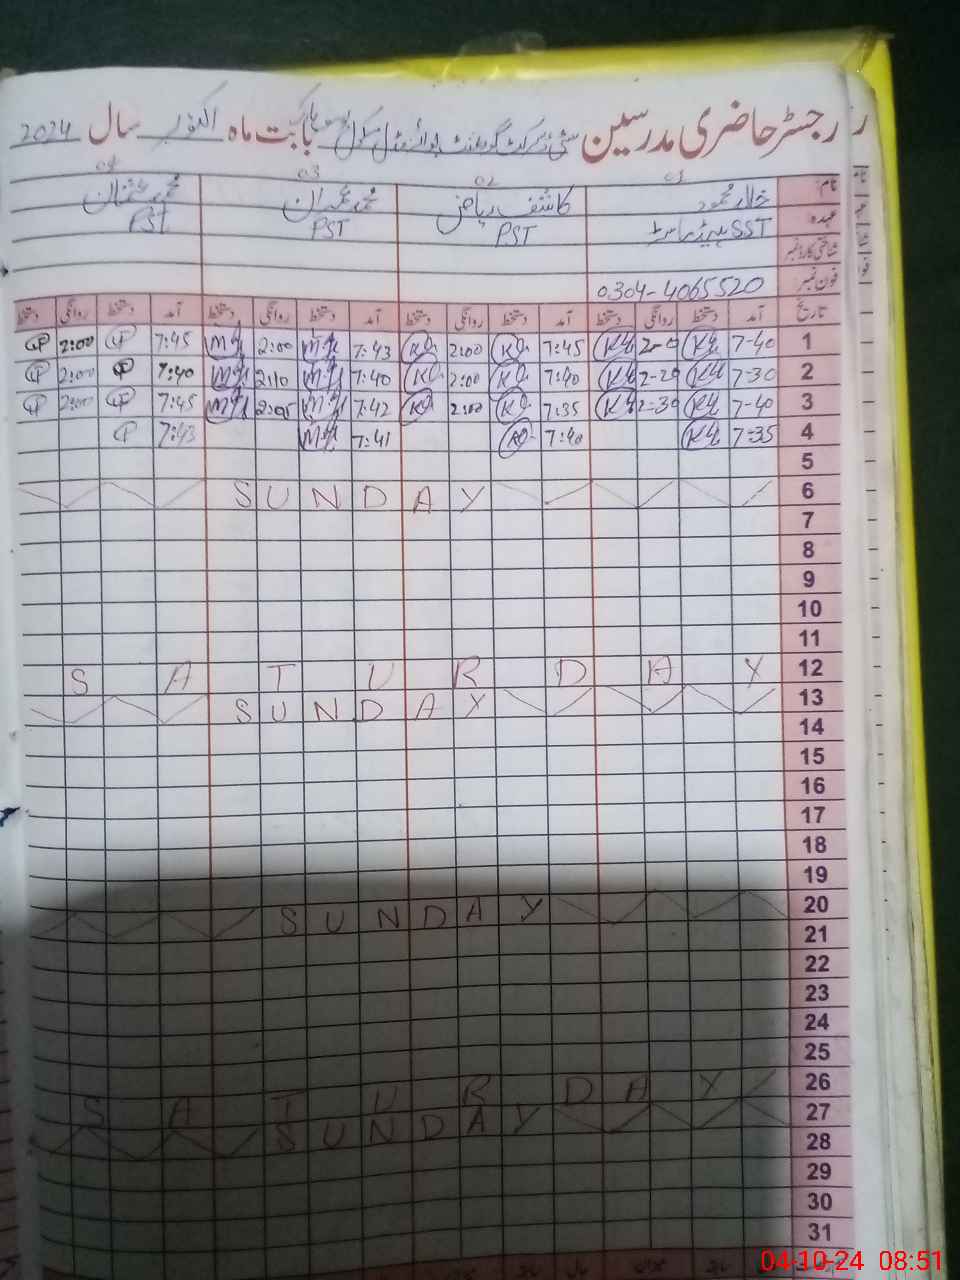 رجسٹر حاضری مدرسین گورنمنٹ سکول بابت ماہ اکتوبر سال 2024
01 02 03 04
نام: خالد محمود کاشف ریاض محمد عمران محمد عثمان
عہدہ: SST ہیڈ ماسٹر PST PST PST
شناختی کارڈ نمبر
فون نمبر 0304-4065520
تاریخ آمد دستخط روانگی دستخط آمد دستخط روانگی دستخط آمد دستخط روانگی دستخط آمد دستخط روانگی دستخط
1 7-40 2-00 7:45 2:00 7:43 2:00 7:45 2:00
2 7-30 2-20 7:40 2:00 7:40 2:10 7:40 2:00
3 7-40 2-30 7:35 2:00 7:42 2:05 7:45 2:00
4 7-35 7:40 7:41 7:43
5
6 SUNDAY
7
8
9
10
11
12 SATURDAY
13 SUNDAY
14
15
16
17
18
19
20 SUNDAY
21
22
23
24
25
26 SATURDAY
27 SUNDAY
28
29
30
31
04-10-24 08:51